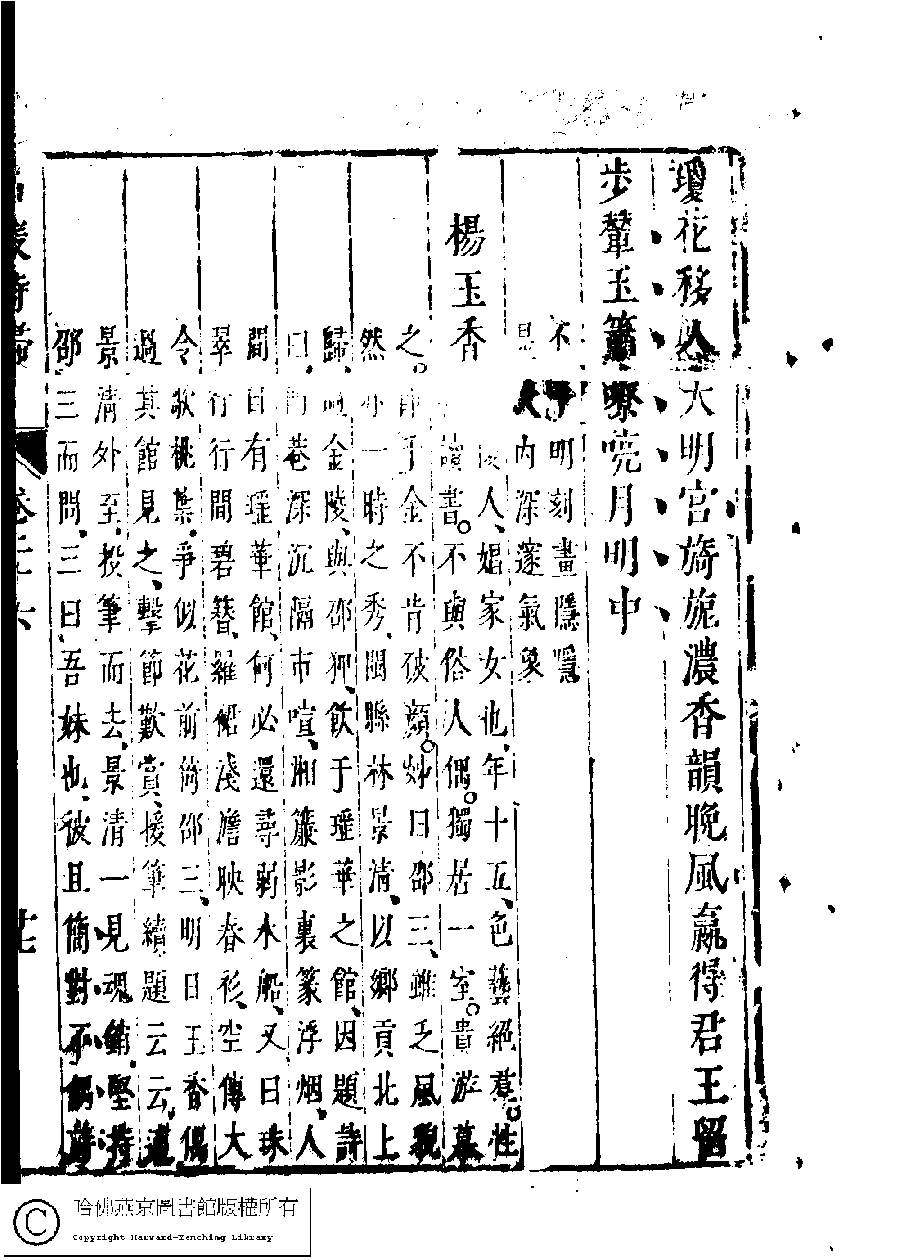 瓊花移入大明宮旖旎濃香韻晚風贏得君王留
步輦玉簫嘹喨月明中
不明刻畫隱隱
見大內深邃氣象
楊玉香
人、娼家女也、年十五、色藝絕羣。性
讀書。不與俗人偶。獨居一室。貴游慕
之。千金不肯破顏。姊曰邵三、雖乏風貌
然亦一時之秀、閩縣林景清、以鄉貢北上
歸、過金陵、與邵狎、飲于瑤華之館、因題詩
曰、門巷深沉隔市喧、湘簾影裏篆浮烟、人
間自有瑤華館、何必還尋弱水船、又曰珠
翠行行間碧簪、羅裙淺澹映春衫、空傳大
令歌桃葉、爭似花前倚邵三、明日玉香偶
過其館見之、擊節歎賞、援筆續題云云、適
景清外至、投筆而去、景清一見魂銷、堅持
邵三而問、三曰、吾妹也、彼且簡對不偶、詩
卷二六
廿七
哈佛燕京圖書館版權所有
Copyright Harvard-Yenching Library